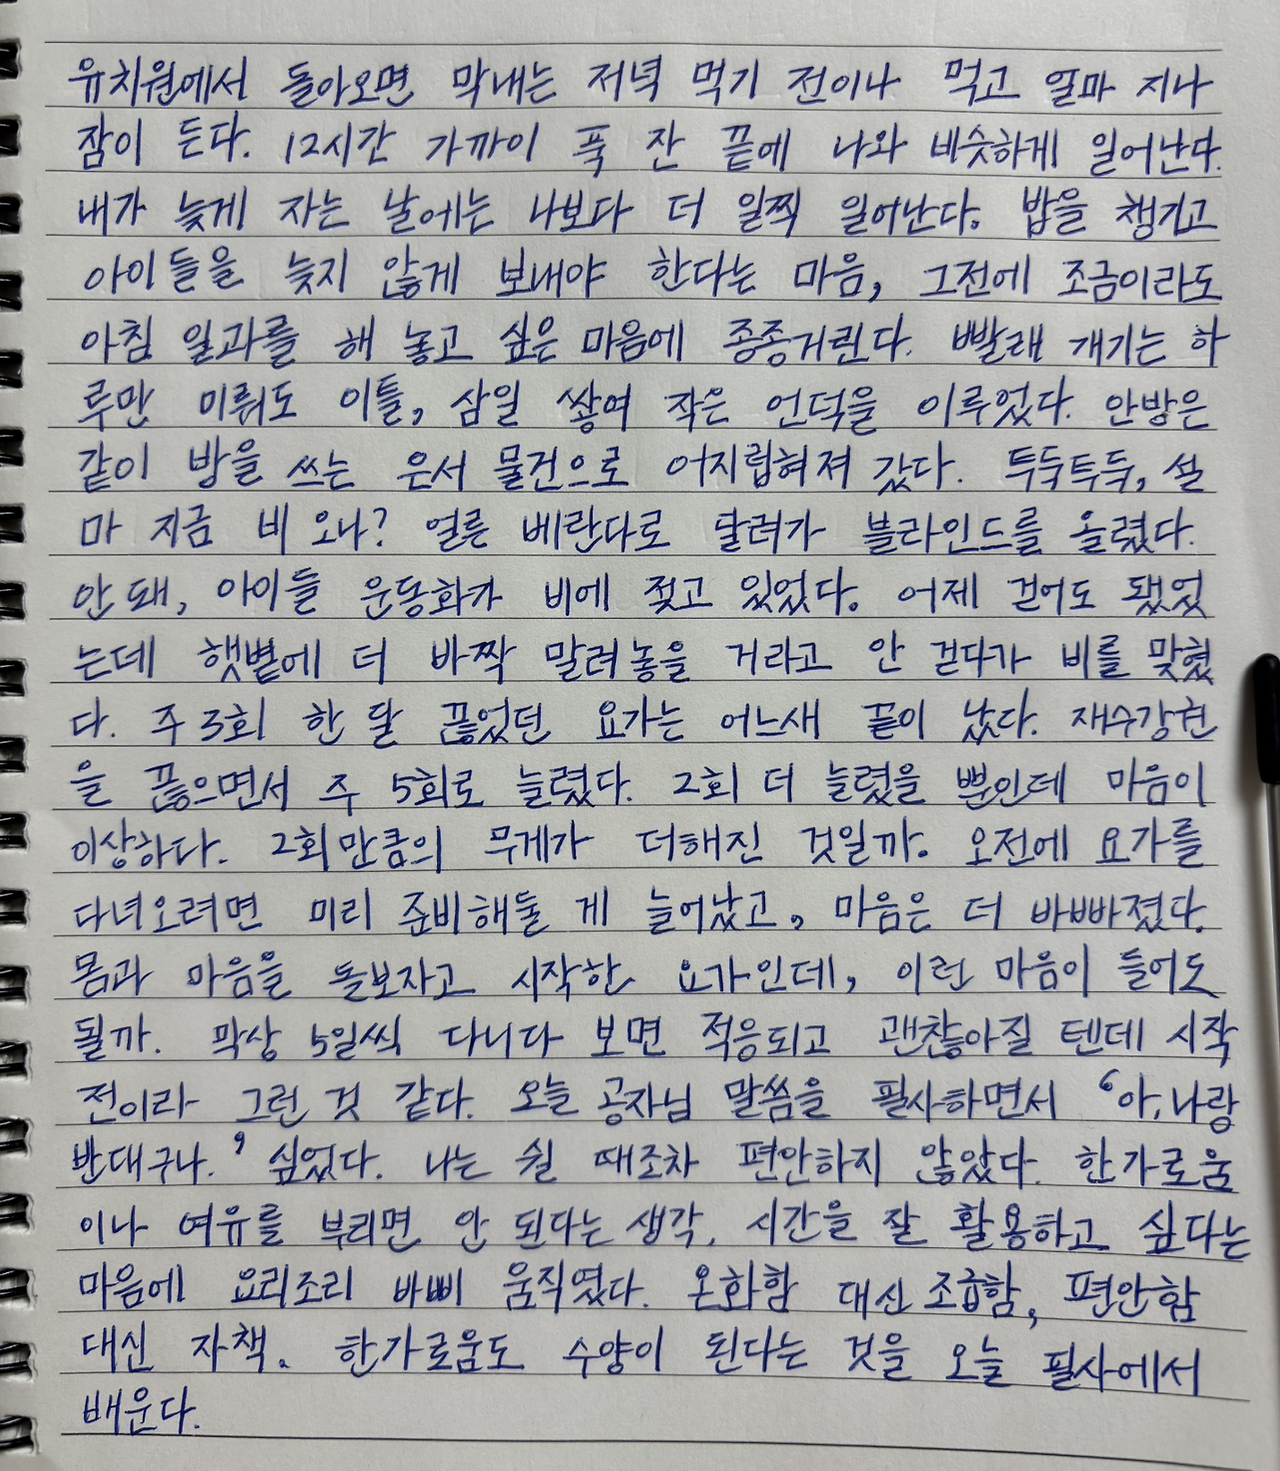 유치원에서 돌아오면 막내는 저녁 먹기 전이나 먹고 얼마 지나
잠이 든다. 12시간 가까이 푹 잔 끝에 나와 비슷하게 일어난다.
내가 늦게 자는 날에는 나보다 더 일찍 일어난다. 밥을 챙기고
아이들을 늦지 않게 보내야 한다는 마음, 그전에 조금이라도
아침 일과를 해 놓고 싶은 마음에 종종거린다. 빨래 개기는 하
루만 미뤄도 이틀, 삼일 쌓여 작은 언덕을 이루었다. 안방은
같이 방을 쓰는 은서 물건으로 어지럽혀져 갔다. 투둑투둑, 설
마 지금 비 오나? 얼른 베란다로 달려가 블라인드를 올렸다.
안 돼, 아이들 운동화가 비에 젖고 있었다. 어제 걷어도 됐었
는데 햇볕에 더 바짝 말려놓을 거라고 안 걷다가 비를 맞혔
다. 주 3회 한 달 끊었던 요가는 어느새 끝이 났다. 재수강권
을 끊으면서 주 5회로 늘렸다. 2회 더 늘렸을 뿐인데 마음이
이상하다. 2회만큼의 무게가 더해진 것일까. 오전에 요가를
다녀오려면 미리 준비해둘 게 늘어났고, 마음은 더 바빠졌다.
몸과 마음을 돌보자고 시작한 요가인데, 이런 마음이 들어도
될까. 막상 5일씩 다니다 보면 적응되고 괜찮아질 텐데 시작
전이라 그런 것 같다. 오늘 공자님 말씀을 필사하면서 ‘아, 나랑
반대구나.’ 싶었다. 나는 쉴 때조차 편안하지 않았다. 한가로움
이나 여유를 부리면 안 된다는 생각, 시간을 잘 활용하고 싶다는
마음에 요리조리 바삐 움직였다. 온화함 대신 조급함, 편안함
대신 자책. 한가로움도 수양이 된다는 것을 오늘 필사에서
배운다.